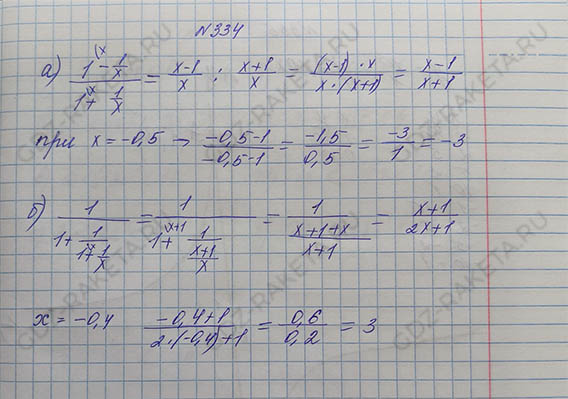 N334
а) (1 - 1/x)/(1 + 1/x) = (x-1)/x : (x+1)/x = ((x-1)·x)/(x·(x+1)) = (x-1)/(x+1)
при x = -0,5 → (-0,5-1)/(-0,5-1) = (-1,5)/(0,5) = (-3)/1 = -3
б) 1/(1 + 1/(1 + 1/x)) = 1/(1 + 1/((x+1)/x)) = 1/((x+1+x)/(x+1)) = (x+1)/(2x+1)
x = -0,4 (-0,4+1)/(2·(-0,4)+1) = 0,6/0,2 = 3
GDZ-RAKETA.RU